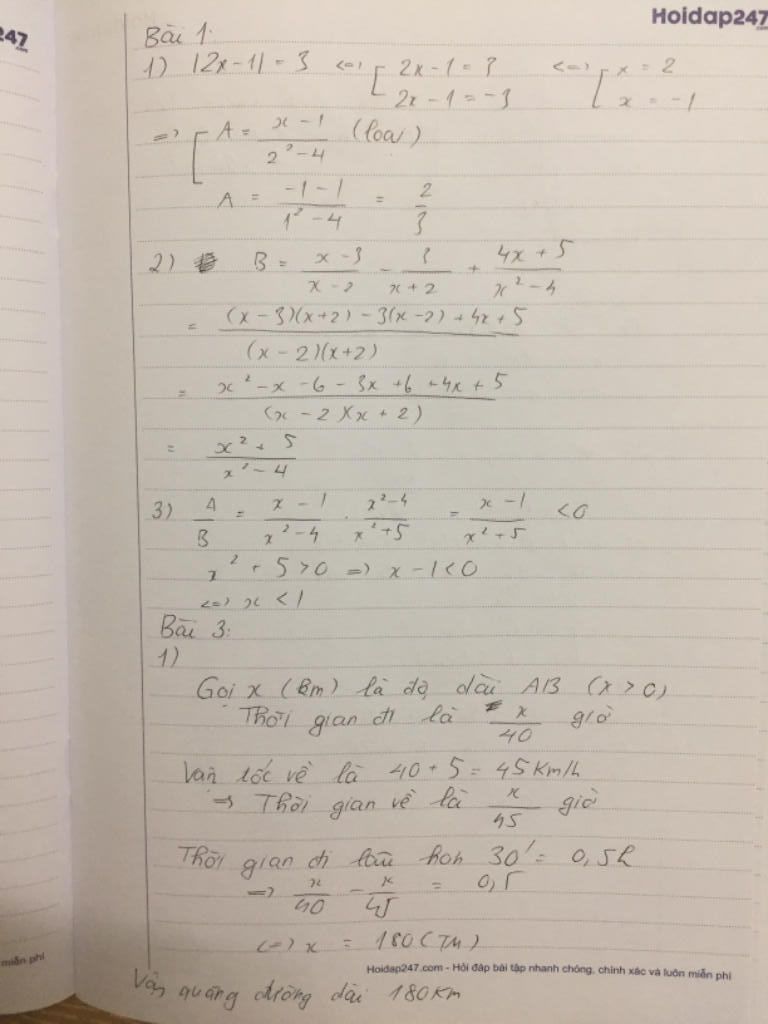 247
.com
Hoidap247
.com
Bài 1:
1) |2x-1| = 3 <=> [ 2x-1 = 3 <=> [ x = 2
2x-1 = -3 x = -1
=> [ A = (x-1)/(2²-4) (loại)
A = (-1-1)/(1²-4) = 2/3
2) B = (x-3)/(x-2) - 3/(x+2) + (4x+5)/(x²-4)
= ((x-3)(x+2) - 3(x-2) + 4x + 5)/((x-2)(x+2))
= (x² - x - 6 - 3x + 6 + 4x + 5)/((x-2)(x+2))
= (x² + 5)/(x² - 4)
3) A/B = (x-1)/(x²-4) . (x²-4)/(x²+5) = (x-1)/(x²+5) < 0
x² + 5 > 0 => x - 1 < 0
<=> x < 1
Bài 3:
1)
Gọi x (km) là độ dài AB (x > 0)
Thời gian đi là x/40 giờ
Vận tốc về là 40 + 5 = 45 Km/h
=> Thời gian về là x/45 giờ
Thời gian đi lâu hơn 30' = 0,5h
=> x/40 - x/45 = 0,5
<=> x = 180 (TM)
miễn phí
Hoidap247.com - Hỏi đáp bài tập nhanh chóng, chính xác và luôn miễn phí
Vậy quãng đường dài 180 Km